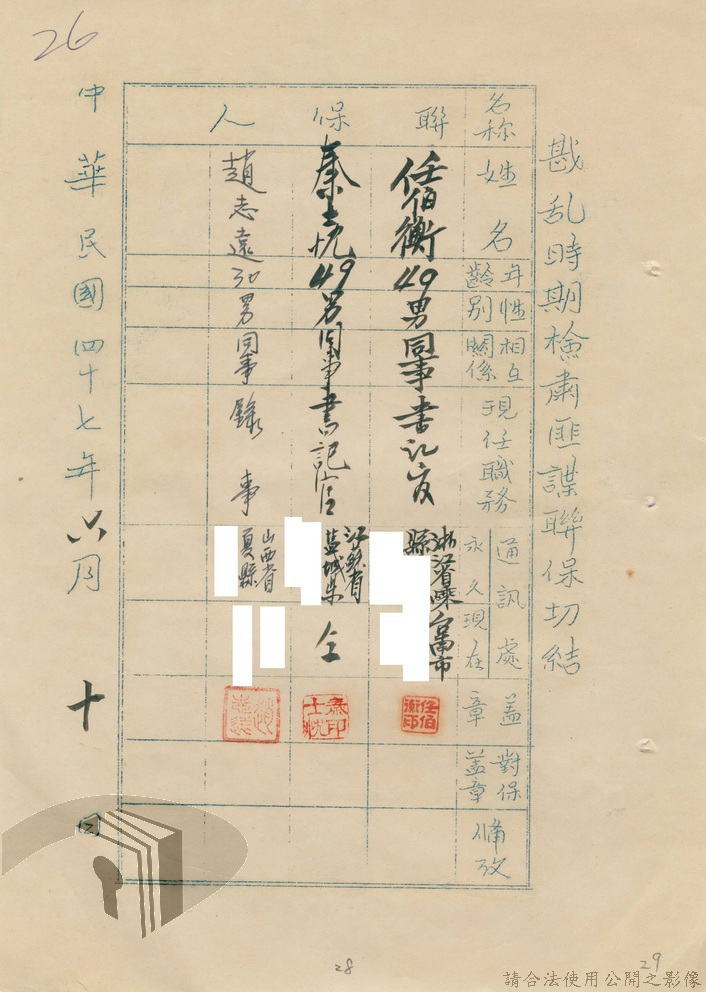 26
戡乱時期檢肅匪諜聯保切結
名称 聯保人
姓名
年齡
性別
相互關係
現任職務
通訊處
永久
現在
蓋章
對保蓋章
備攷
任伯衡 49 男 同事 書记官
浙江省嵊縣
任伯衡印
秦士忱 49 男 同事 書記官
江蘇省盐城
仝
秦印士忱
趙志遠 30 男 同事 錄事
山西省夏縣
中華民國四十七年六月十日
28
29
請合法使用公開之影像